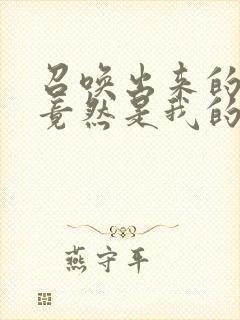 召唤出来的
竟然是我的
燕守平